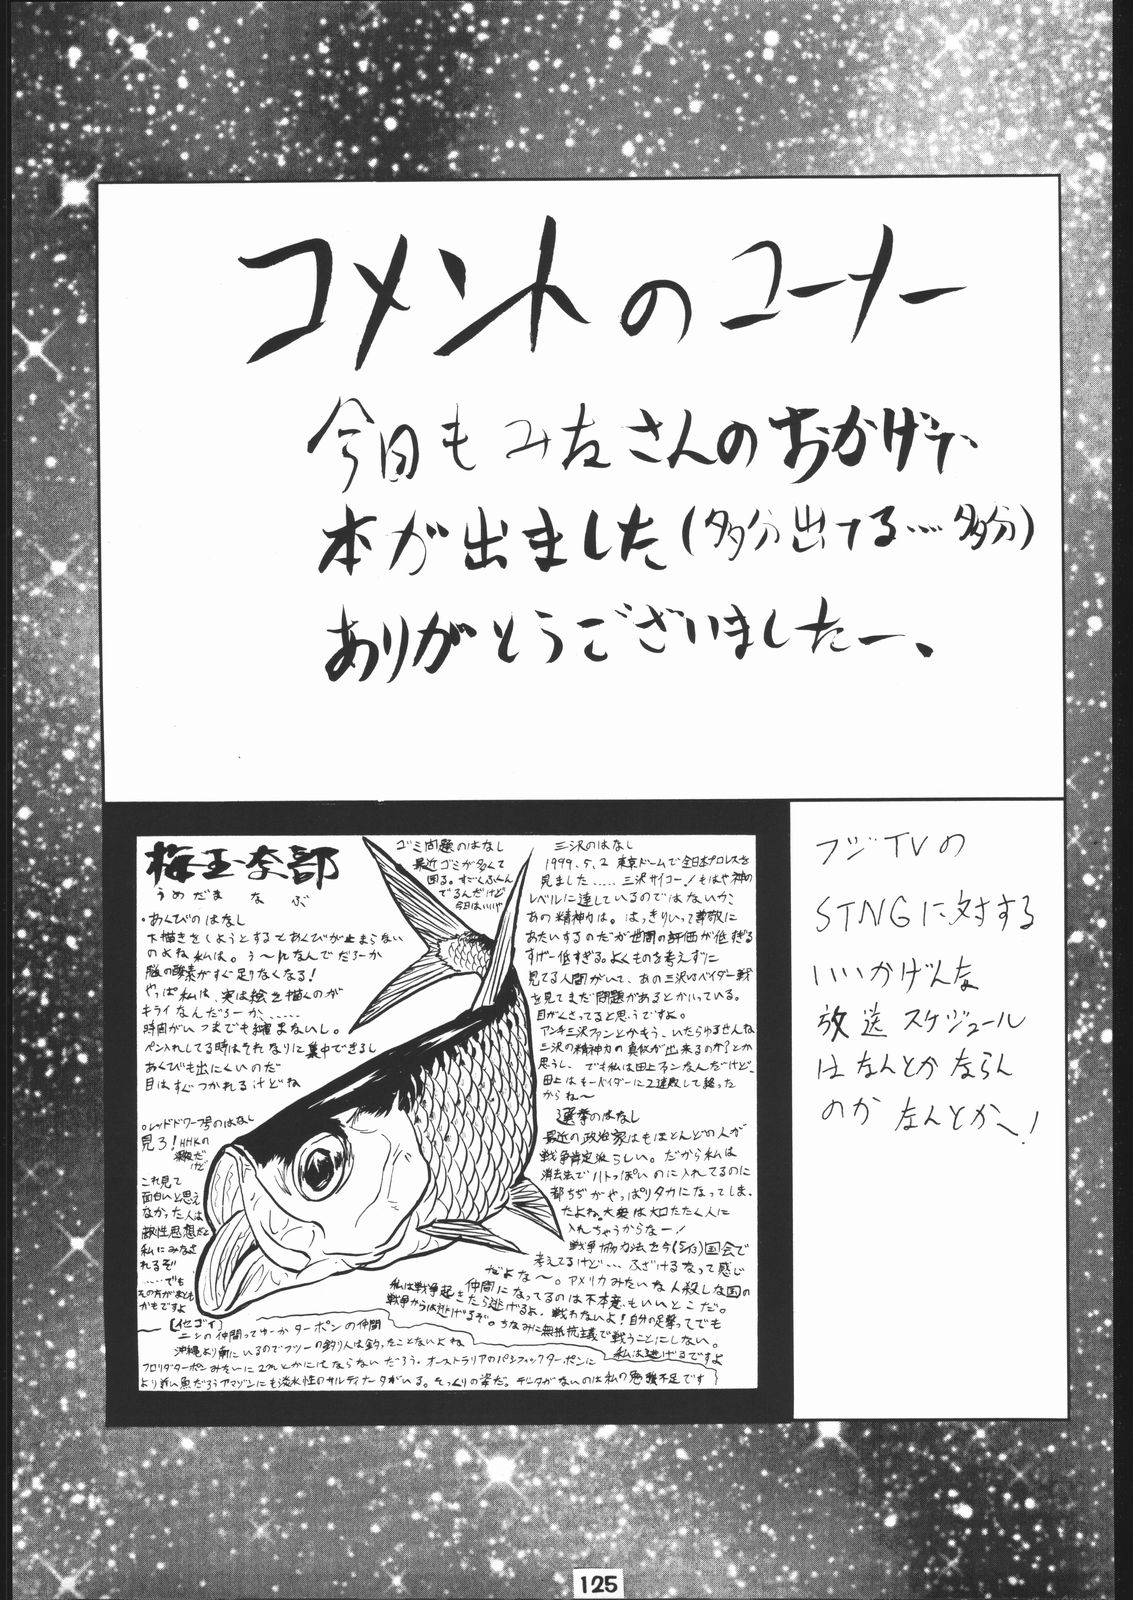 コメントのコーナー
今日もみなさんのおかげで、
本が出ました(多分出てる……多分)
ありがとうございましたー、
梅玉奈部
うめだまなぶ
・あくびのはなし
下描きをしようとするとあくびが止まらない
のよね私は。う〜んなんでだろーか
脳の酸素がすぐ足りなくなる!
やっぱ私は、実は絵を描くのが
キライなんだろーか、……
時間がいつまでも縮まないし。
ペン入れしてる時はそれなりに集中できるし
あくびも出にくいのだ
目はすぐつかれるけどね
○レッドドワーフ号のはなし
見ろ!NHKの
だけど
これ見て
面白いと思え
なかった人は
敵性思想だと
私にみなさ
れるぞ
……でも
その方がまとも
かもですよ
ゴミ問題のはなし
最近ゴミが多くて
困る。すごくふくん
でるんだけど
今日はいいや
三沢のはなし
1999.5.2 東京ドームで全日本プロレスを
見ました……三沢サイコー!もはや神の
レベルに達しているのではないか、
あの精神力は。はっきりいって尊敬に
あたいするのだが世間の評価が低すぎる
すげー低すぎる。よくものを考えずに
見てる人間がいて、あの三沢VSベイダー戦
を見てまだ問題があるとかいっている。
目がくさってると思うですよ。
アンチ三沢ファンとかもう、いたらゆるせんね
三沢の精神力の真似が出来るのか?とか
思うし、でも私は田上ファンなんだけど、
田上はもーベイダーに2連敗して終った
からね〜
選挙のはなし
最近の政治家はもほとんどの人が
戦争肯定派らしい。だから私は
消去法でハトっぽいのに入れてるのに
都ちぢがやっぱりタカになってしま、
たよね。大衆は大口たたく人に
入れちゃうからなー!
戦争協力法を今(5/13)国会で
考えてるけど…ふざけるなって感じ
だよな〜。アメリカみたいな人殺しな国の
仲間になってるのは不本意もいいとこだ。
私は戦争起きたら逃げるよ、戦わないよ!自分の足撃ってでも
戦争からは逃げるぞ。ちなみに無抵抗主義で戦うことにしない。
私は逃げるですよ
[イセゴイ]
ニシンの仲間ってゆーかターポンの仲間
沖縄より南にいるのでフツーの釣り人は釣ったことないよね
フロリダターポンみたいに2mとかにはならないだろう。オーストラリアのパシフィックターポンに
より近い魚だろうアマゾンにも淡水性のサルディナータがいる。そっくりの姿だ。データがないのは私の勉強不足です
フジTVの
STNGに対する
いいかげんな
放送スケジュール
はなんとかならん
のか なんとかへ!
125